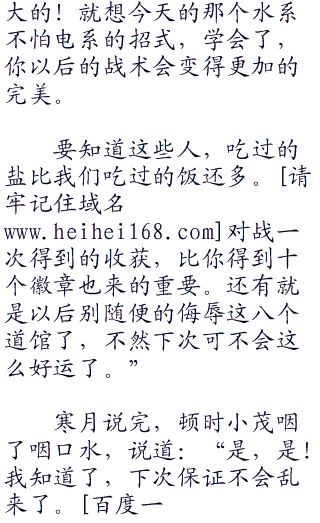 大的！就想今天的那个水系
不怕电系的招式，学会了，
你以后的战术会变得更加的
完美。
要知道这些人，吃过的
盐比我们吃过的饭还多。[请
牢记住域名
www.heihei168.com]对战一
次得到的收获，比你得到十
个徽章也来的重要。还有就
是以后别随便的侮辱这八个
道馆了，不然下次可不会这
么好运了。”
寒月说完，顿时小茂咽
了咽口水，说道：“是，是！
我知道了，下次保证不会乱
来了。[百度一